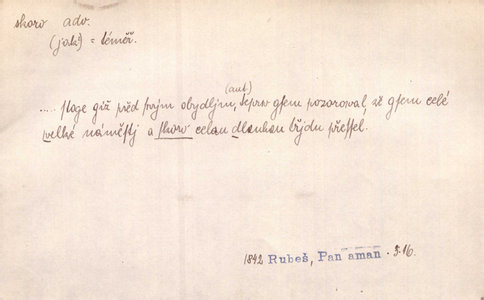 skoro adv.
(jak?) = téměř.
(aut.)
..... stoge giž před swým obydljm, teprw gsem pozorowal, že gsem celé
welké náměstj a skoro celau dlauhau třjdu přessel.
1842 Rubeš, Pan aman. 3.16.